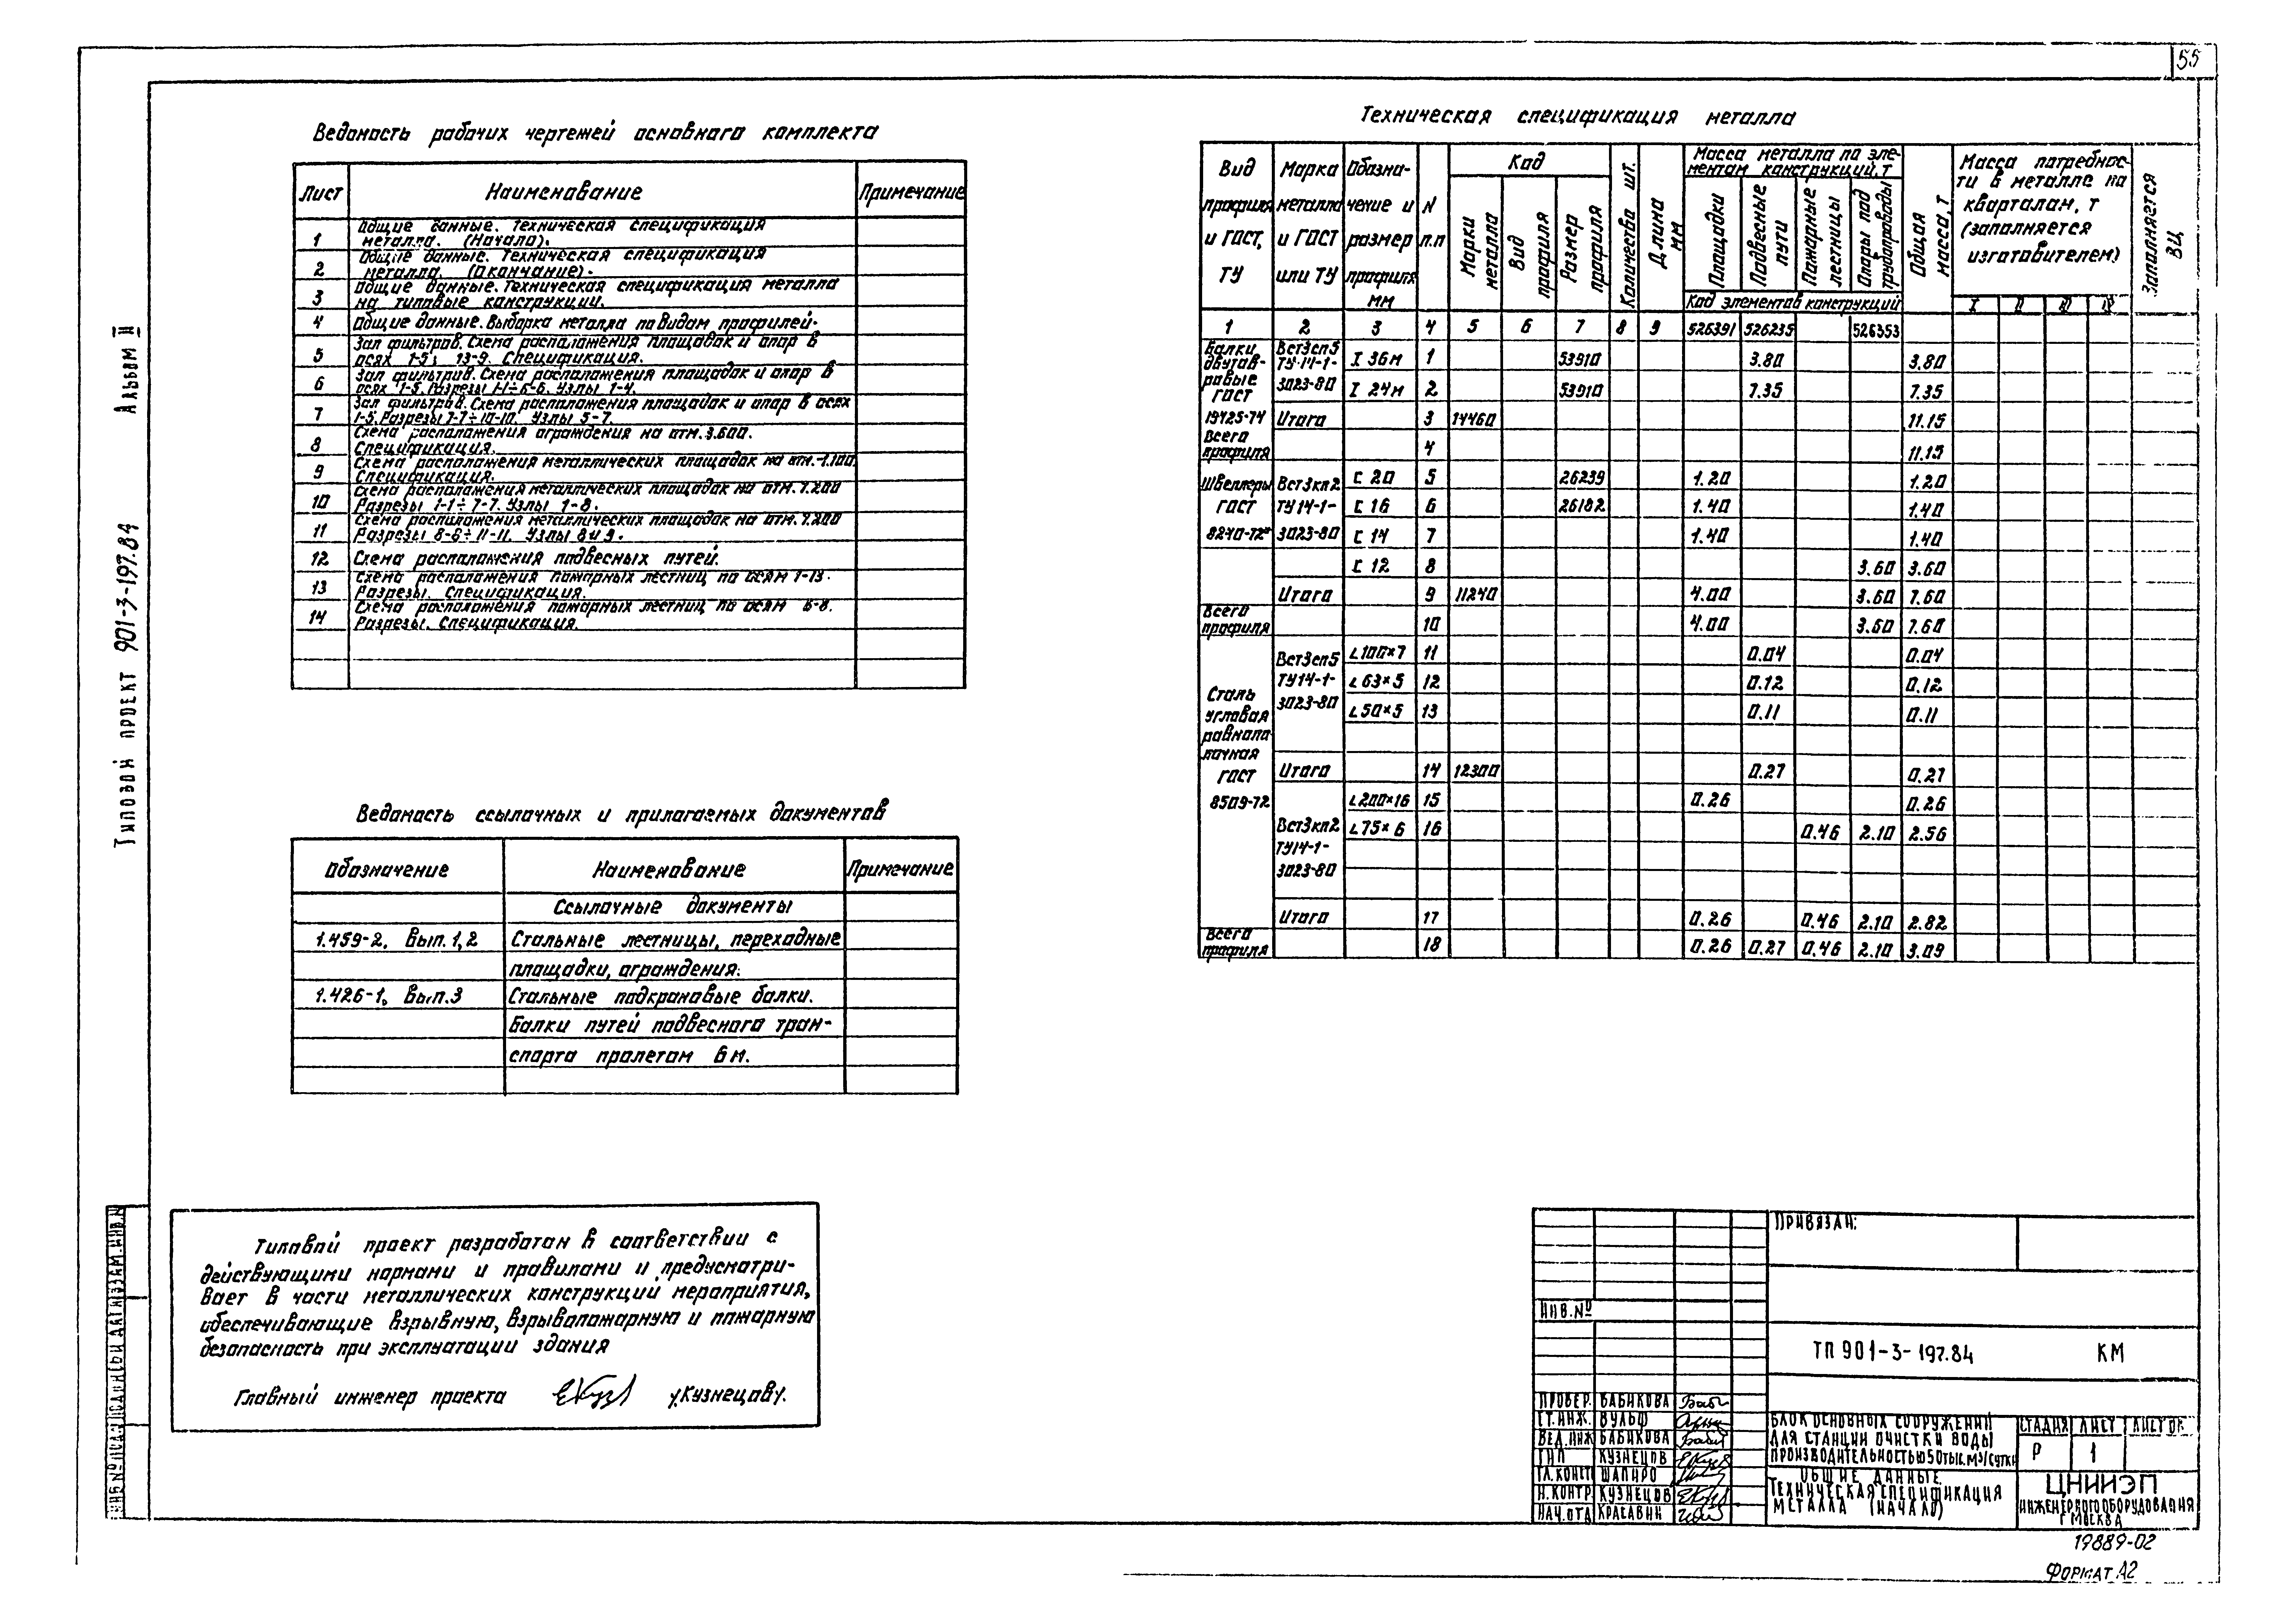 55
Ведомость рабочих чертежей основного комплекта
Лист Наименование Примечание
1 Общие данные. Техническая спецификация металла. (Начало).
2 Общие данные. Техническая спецификация металла. (Окончание).
3 Общие данные. Техническая спецификация металла на типовые конструкции.
4 Общие данные. Выборка металла по видам профилей.
5 Зал фильтров. Схема расположения площадок и опор в осях 1-5; 13-9. Спецификация.
6 Зал фильтров. Схема расположения площадок и опор в осях 1-5. Разрезы 1-1÷6-6. Узлы 1-4.
7 Зал фильтров. Схема расположения площадок и опор в осях 1-5. Разрезы 7-7÷10-10. Узлы 5-7.
8 Схема расположения ограждения на отм. 3.600. Спецификация.
9 Схема расположения металлических площадок на отм. -1.100. Спецификация.
10 Схема расположения металлических площадок на отм. 7.200 Разрезы 1-1÷7-7. Узлы 1-8.
11 Схема расположения металлических площадок на отм. 7.200 Разрезы 8-8÷11-11. Узлы 8 и 9.
12 Схема расположения подвесных путей.
13 Схема расположения пожарных лестниц по осям 1-13. Разрезы. Спецификация.
14 Схема расположения пожарных лестниц по осям Б-В. Разрезы. Спецификация.
Ведомость ссылочных и прилагаемых документов
Обозначение Наименование Примечание
Ссылочные документы
1.459-2, Вып. 1,2 Стальные лестницы, переходные
площадки, ограждения.
1.426-1, Вып.3 Стальные подкрановые балки.
Балки путей подвесного тран-
спорта пролетом 6м.
Типовой проект разработан в соответствии с
действующими нормами и правилами и предусматри-
вает в части металлических конструкций мероприятия,
обеспечивающие взрывную, взрывопожарную и пожарную
безопасность при эксплуатации здания
Главный инженер проекта /Кузнецов/.
Типовой проект 901-3-197.84 Альбом II
Техническая спецификация металла
Вид профиля и ГОСТ, ТУ
Марка металла и ГОСТ или ТУ
Обозначение и размер профиля мм
N п.п
Код
Марки металла
Вид профиля
Размер профиля
Количество шт.
Длина мм
Масса металла по элементам конструкций, т
Площадки
Подвесные пути
Пожарные лестницы
Опоры под трубопроводы
Код элементов конструкций
Общая масса, т
Масса потребности в металле по кварталам, т (заполняется изготовителем)
I II III IV
Заполняется ВЦ
1 2 3 4 5 6 7 8 9 526391 526235 526353
Балки двутавровые ГОСТ 19425-74 Вст3сп5 ТУ14-1-3023-80 I 36м 1 53910 3.80 3.80
I 24м 2 53910 7.35 7.35
Итого 3 14460 11.15
Всего профиля 4 11.15
Швеллеры ГОСТ 8240-72* Вст3кп2 ТУ14-1-3023-80 С 20 5 26239 1.20 1.20
С 16 6 26182 1.40 1.40
С 14 7 1.40 1.40
С 12 8 3.60 3.60
Итого 9 11240 4.00 3.60 7.60
Всего профиля 10 4.00 3.60 7.60
Сталь угловая равнополочная ГОСТ 8509-72 Вст3сп5 ТУ14-1-3023-80 L100×7 11 0.04 0.04
L63×5 12 0.12 0.12
L50×5 13 0.11 0.11
Итого 14 12300 0.27 0.27
Вст3кп2 ТУ14-1-3023-80 L200×16 15 0.26 0.26
L75×6 16 0.46 2.10 2.56
Итого 17 0.26 0.46 2.10 2.82
Всего профиля 18 0.26 0.27 0.46 2.10 3.09
ПРИВЯЗАН:
ИНВ.№
ТП 901-3-197.84 КМ
ПРОВЕР. БАБИКОВА
СТ.ИНЖ. ВУЛЬФ
ВЕД.ИНЖ БАБИКОВА
ГИП КУЗНЕЦОВ
ГЛ.КОНСТ ШАПИРО
Н.КОНТР КУЗНЕЦОВ
НАЧ.ОТД КРАСАВИН
БЛОК ОСНОВНЫХ СООРУЖЕНИЙ
ДЛЯ СТАНЦИИ ОЧИСТКИ ВОДЫ
ПРОИЗВОДИТЕЛЬНОСТЬЮ 50 ТЫС.М3/СУТКИ
СТАДИЯ ЛИСТ ЛИСТОВ
Р 1
ОБЩИЕ ДАННЫЕ.
ТЕХНИЧЕСКАЯ СПЕЦИФИКАЦИЯ
МЕТАЛЛА (НАЧАЛО)
ЦНИИЭП
ИНЖЕНЕРНОГО ОБОРУДОВАНИЯ
Г. МОСКВА
19889-02
ФОРМАТ А2
ИНВ.№ ПОДЛ. ПОДПИСЬ И ДАТА ВЗАМ.ИНВ.№